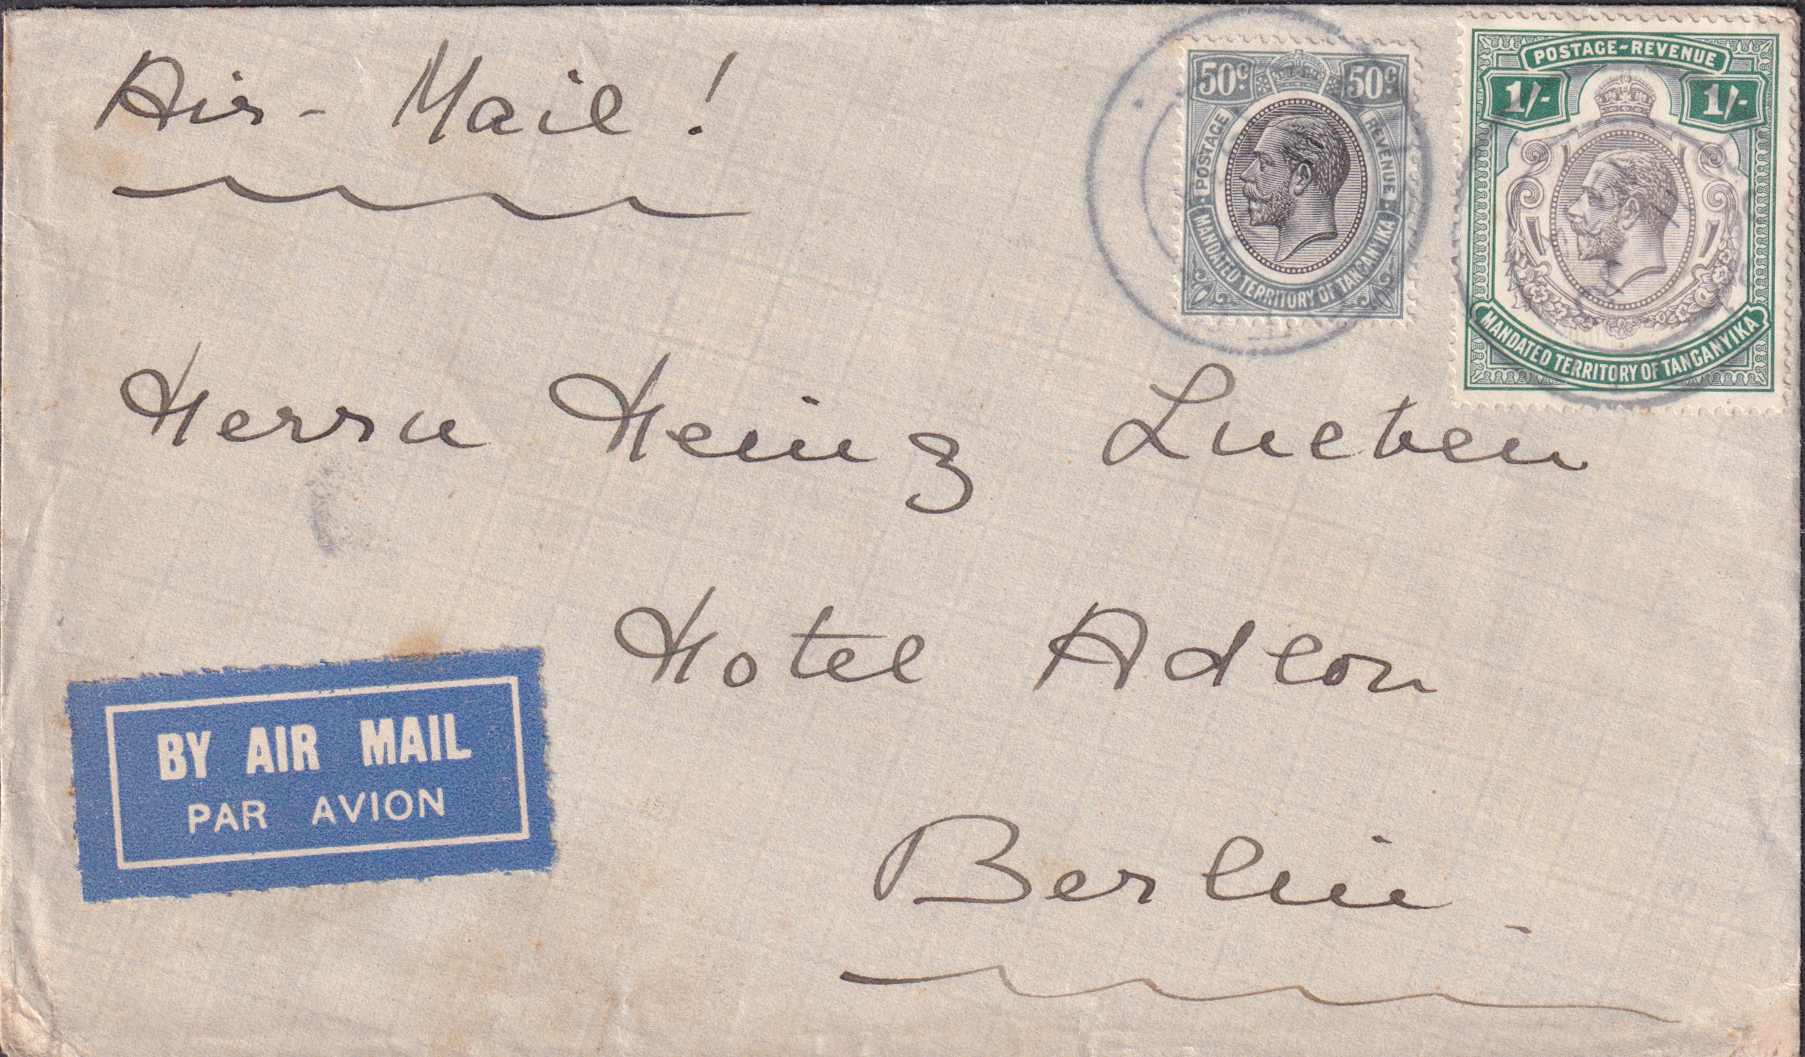 Air-Mail!
50c 50c
POSTAGE REVENUE
MANDATED TERRITORY OF TANGANYIKA
POSTAGE-REVENUE
1/- 1/-
MANDATED TERRITORY OF TANGANYIKA
Herrn Heinz
Hotel Adlon
Berlin
BY AIR MAIL
PAR AVION